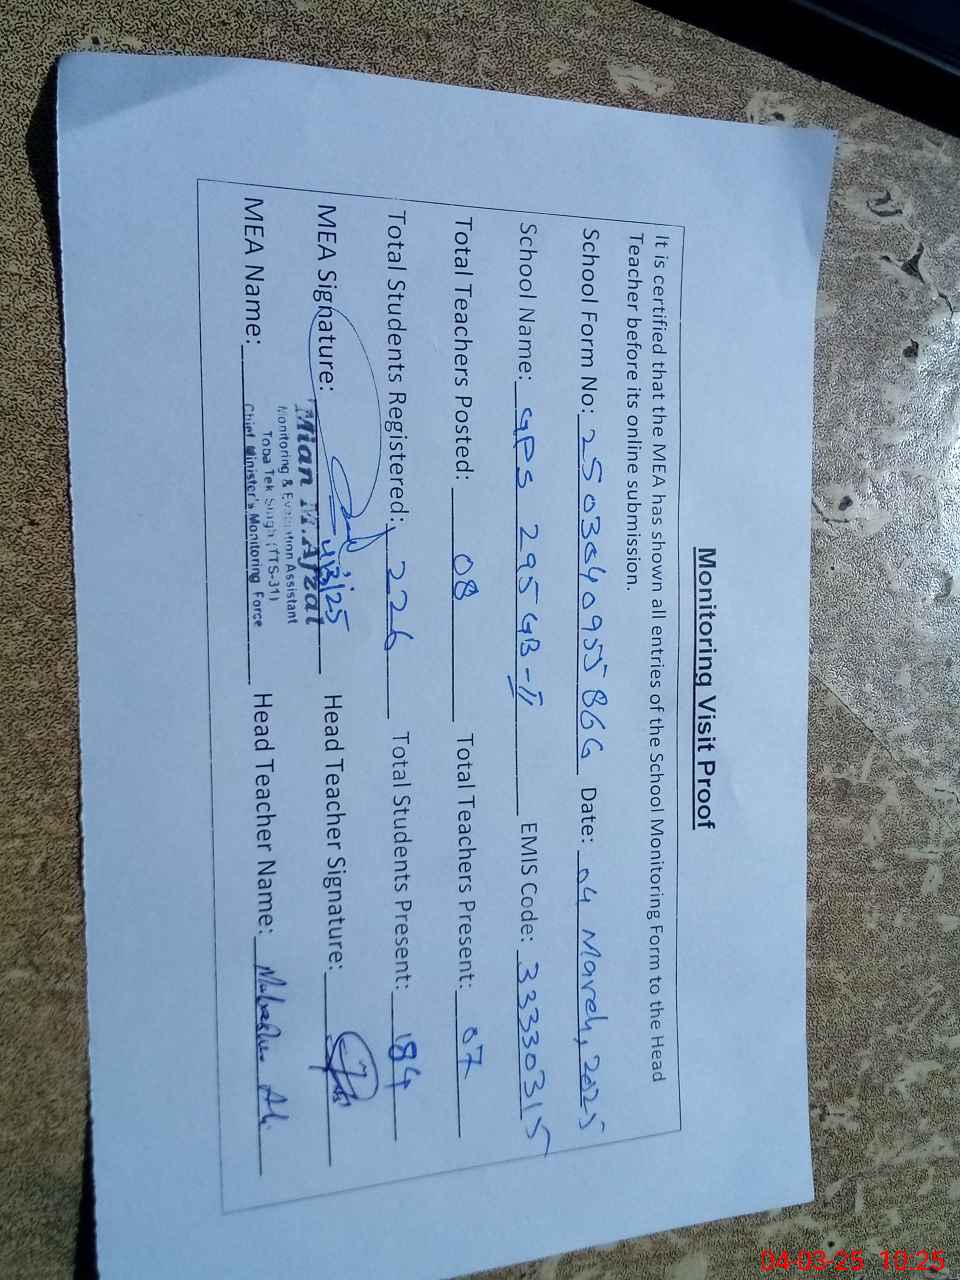 Monitoring Visit Proof
It is certified that the MEA has shown all entries of the School Monitoring Form to the Head
Teacher before its online submission.
School Form No: 2503040955866 Date: 04 March, 2025
School Name: GPS 295 GB-II EMIS Code: 33330315
Total Teachers Posted: 08 Total Teachers Present: 07
Total Students Registered: 226 Total Students Present: 184
MEA Signature: 4/3/25 Head Teacher Signature:
Mian M.Afzal
Monitoring & Evaluation Assistant
Toba Tek Singh (TTS-31)
Chief Minister's Monitoring Force
MEA Name: Head Teacher Name: Ali
04-03-25 10:25